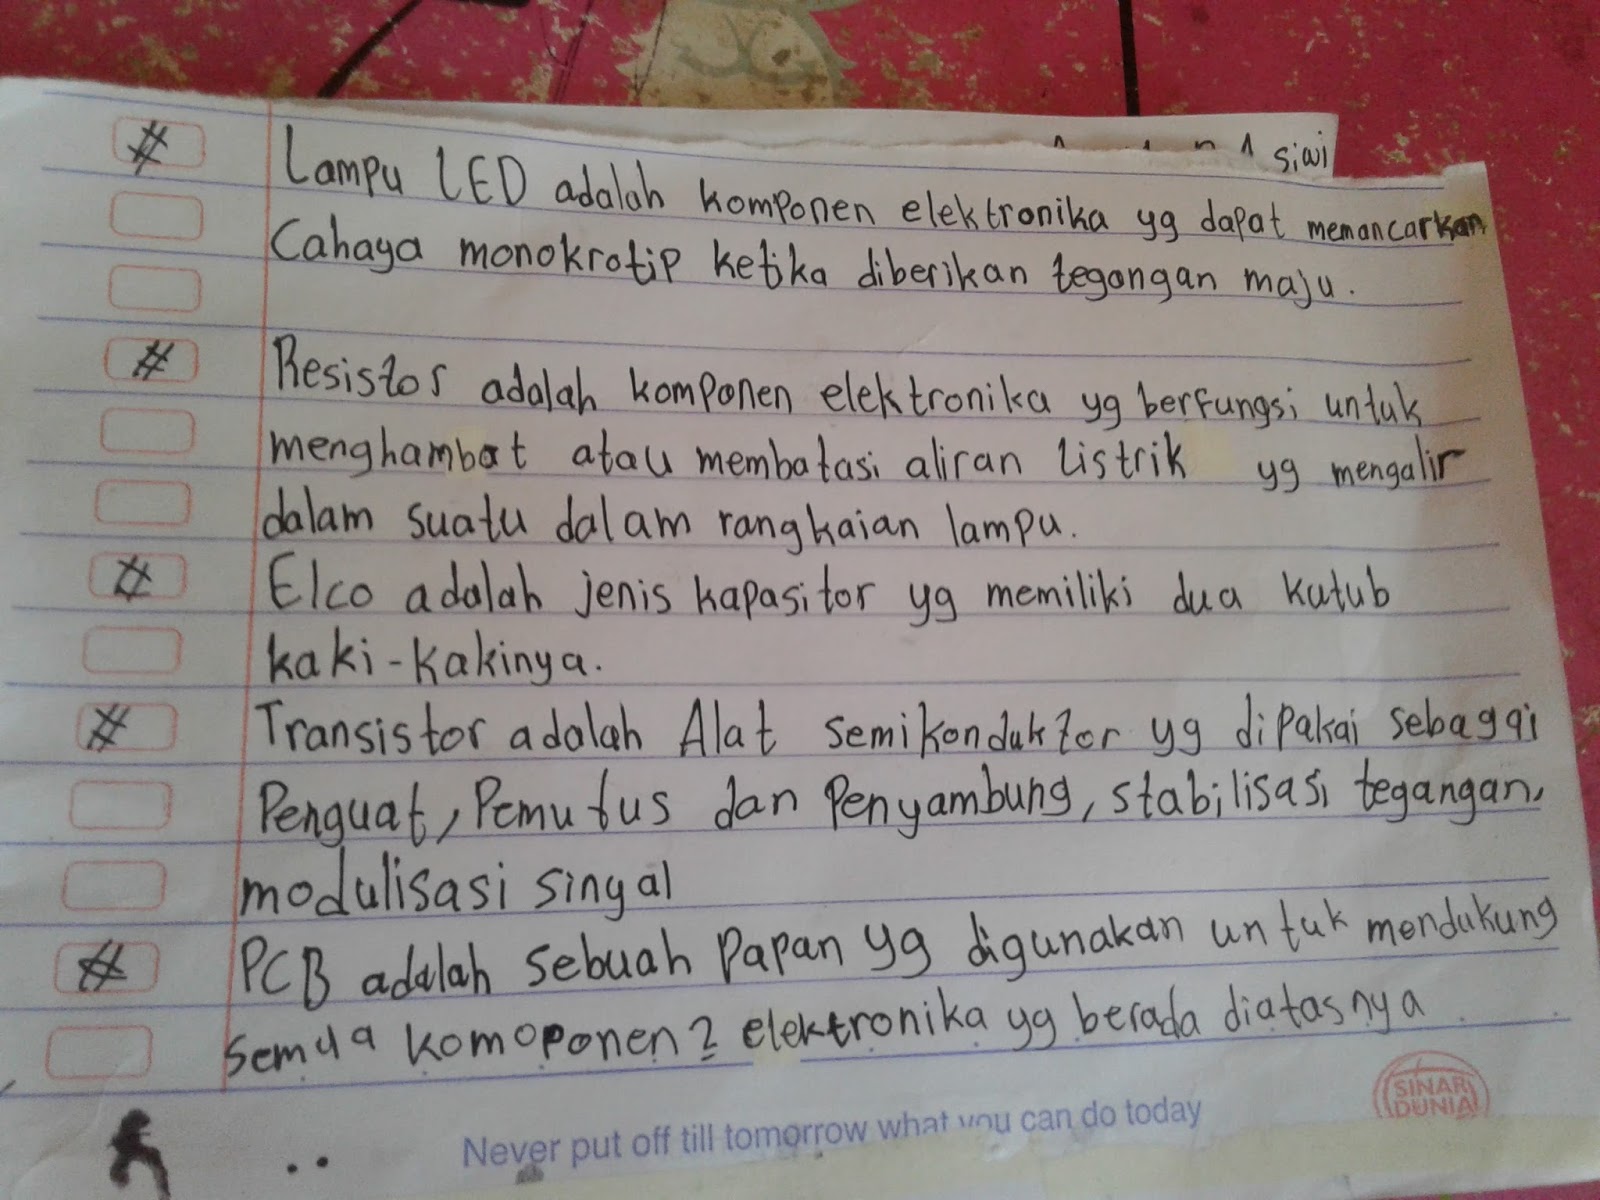 siwi
# Lampu LED adalah komponen elektronika yg dapat memancarkan
Cahaya monokrotip ketika diberikan tegangan maju.
# Resistor adalah komponen elektronika yg berfungsi untuk
menghambat atau membatasi aliran listrik yg mengalir
dalam suatu dalam rangkaian lampu.
# Elco adalah jenis kapasitor yg memiliki dua kutub
kaki-kakinya.
# Transistor adalah Alat semikonduktor yg dipakai sebagai
Penguat, Pemutus dan Penyambung, stabilisasi tegangan,
modulisasi sinyal
# PCB adalah sebuah Papan yg digunakan untuk mendukung
semua komoponen2 elektronika yg berada diatasnya
SINAR
DUNIA
Never put off till tomorrow what you can do today